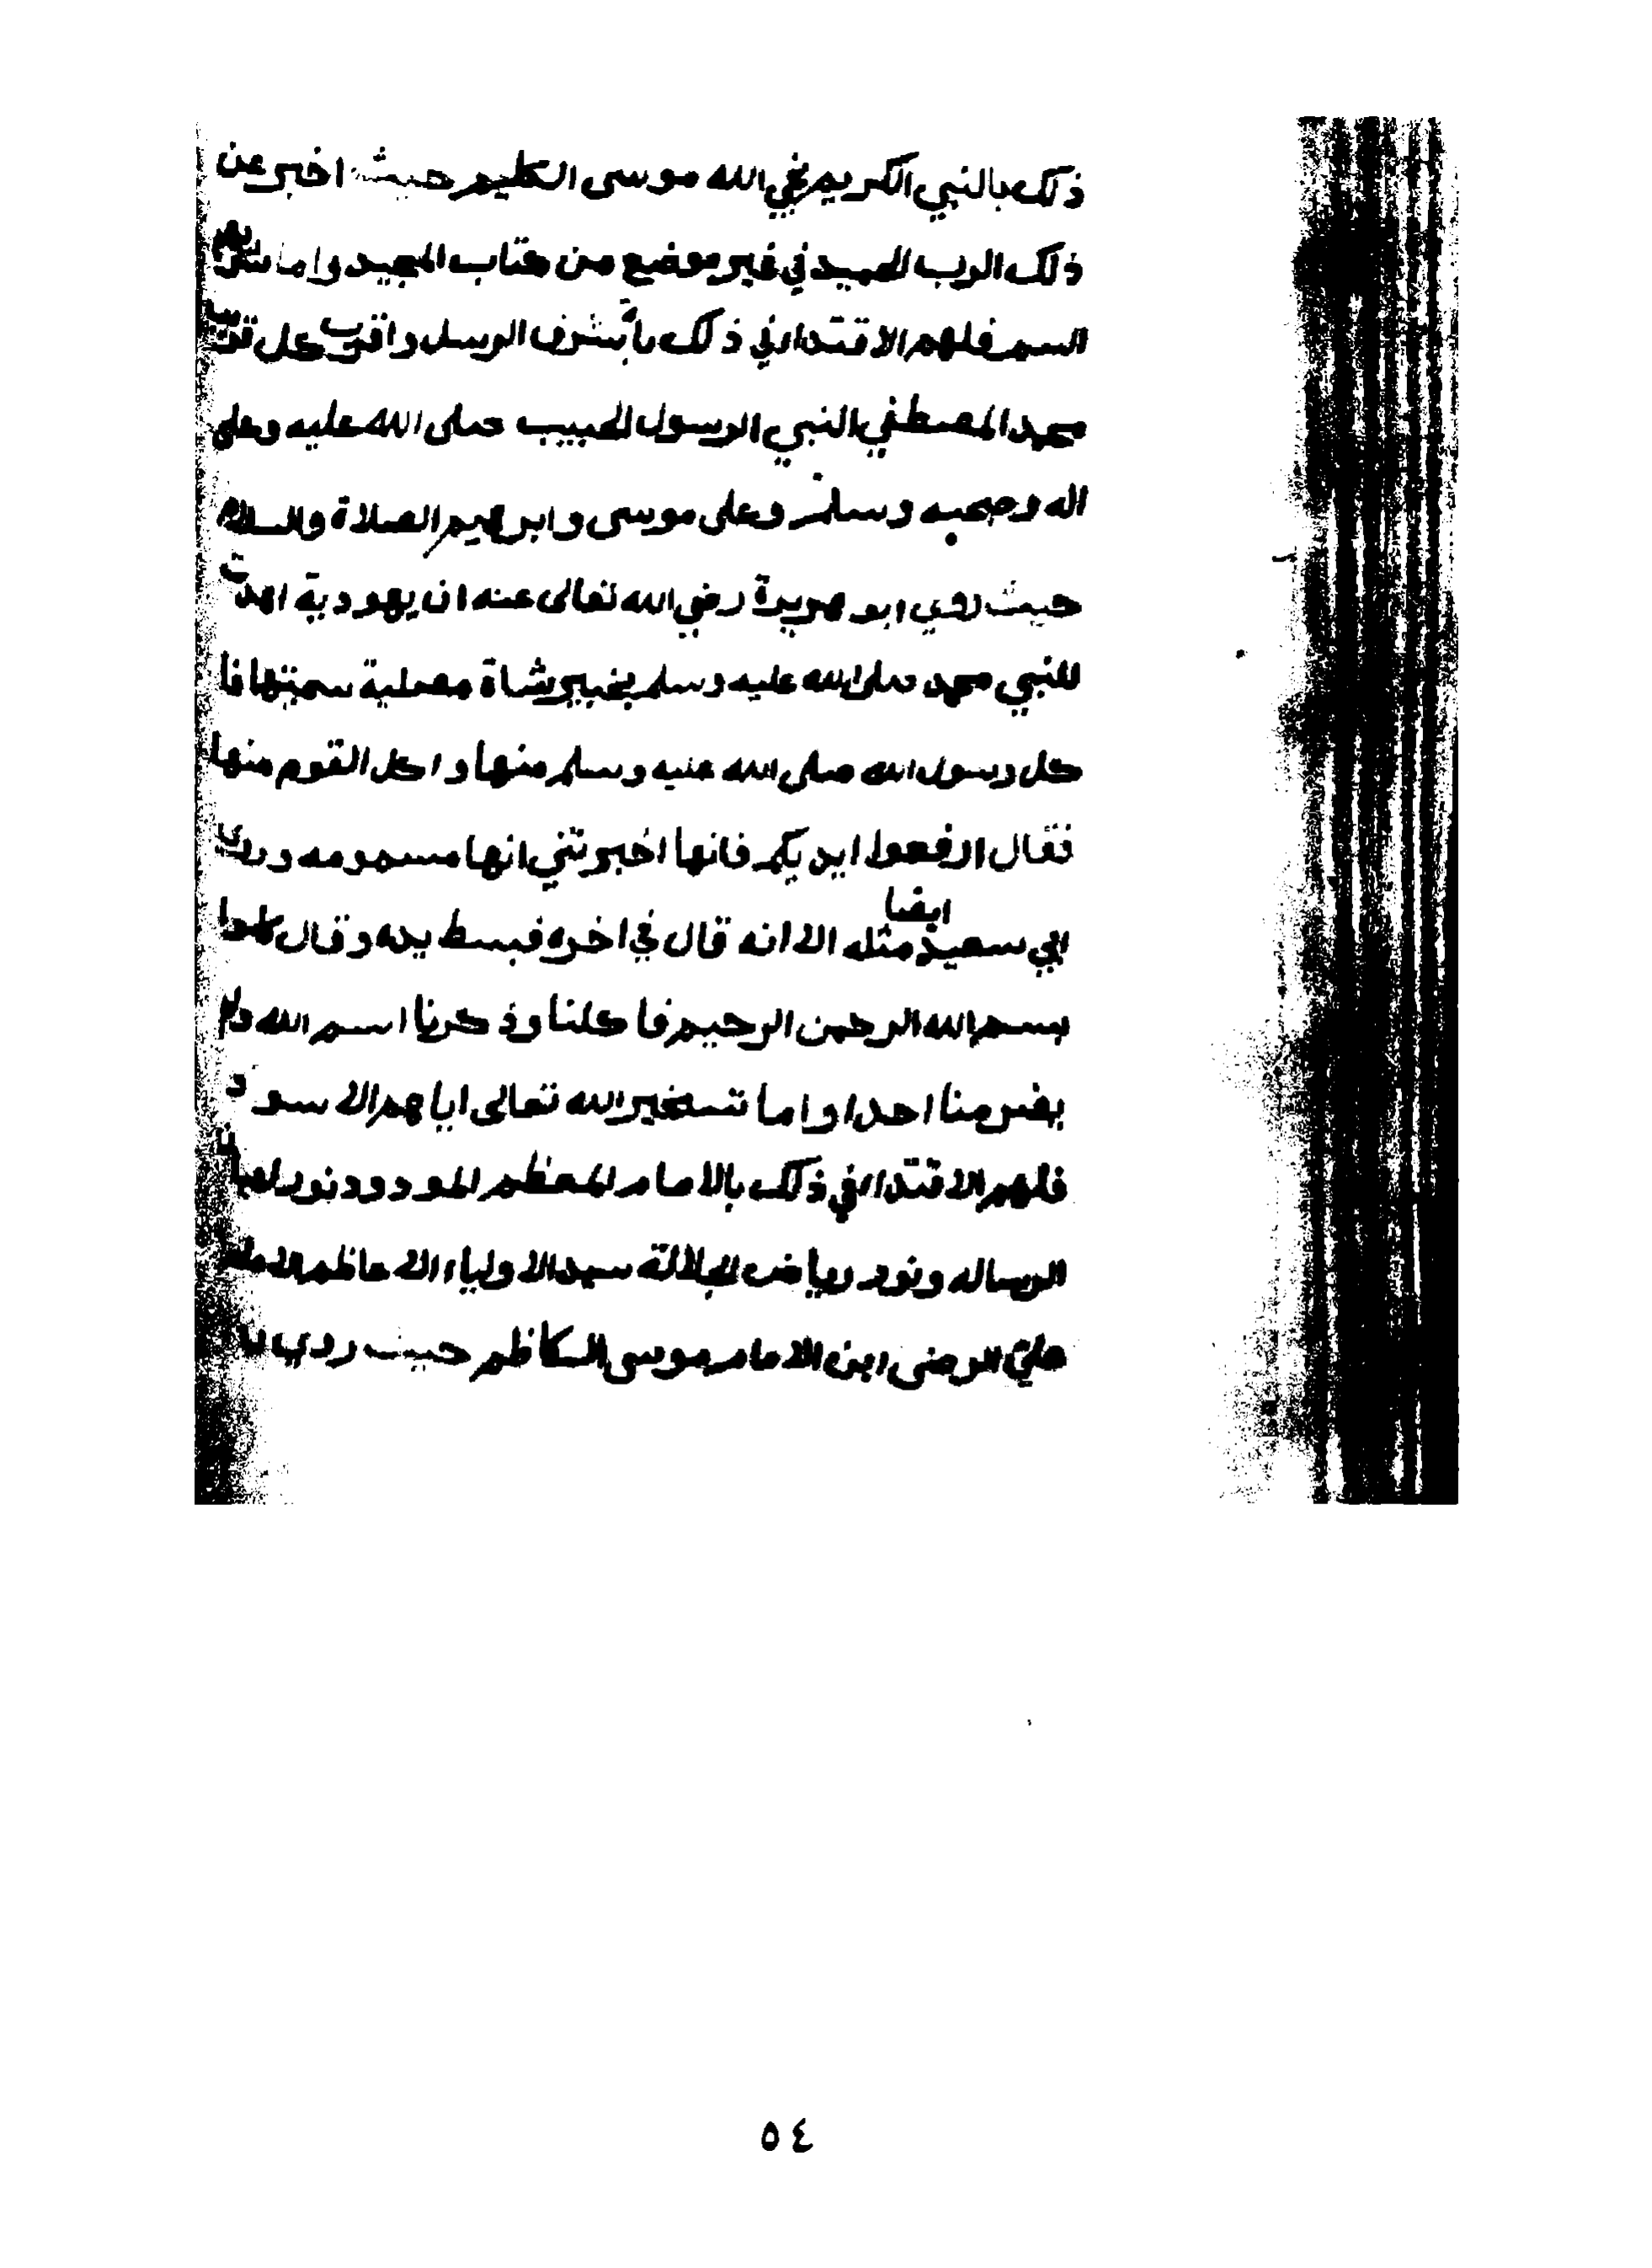 ذلك بالنبي الكريم نجي الله موسى الكليم حيث اخبر عن
ذلك الرب الحميد في غير موضع من كتاب المجيد واما شربهم
السم فلهم الاقتدا في ذلك باشرف الرسل واقرب كل قريب
محمد المصطفي النبي الرسول الحبيب صلى الله عليه وعلى
اله وصحبه وسلم وعلى موسى وابرهيم الصلاة والسلام
حيث روي ابو هريرة رضي الله تعالى عنه ان يهودية اهدت
للنبي محمد صلى الله عليه وسلم بخيبر شاة مصلية سمتها فا
كل رسول الله صلى الله عليه وسلم منها واكل القوم منها
فقال ارفعوا ايديكم فانها اخبرتني انها مسمومه وروي
ايضا
ابي سعيد مثله الا انه قال في اخره فبسط يده وقال كلوا
بسم الله الرحمن الرحيم فاكلنا وذكرنا اسم الله فلم
يضر منا احدا واما تسخير الله تعالى اياهم الاسود
فلهم الاقتدا في ذلك بالامام المعظم المودود نور
الرساله ونور رياض الجلالة سيد الاولياء الاعاظم الامام
علي الرضى ابن الامام موسى الكاظم حيث روي
٥٤